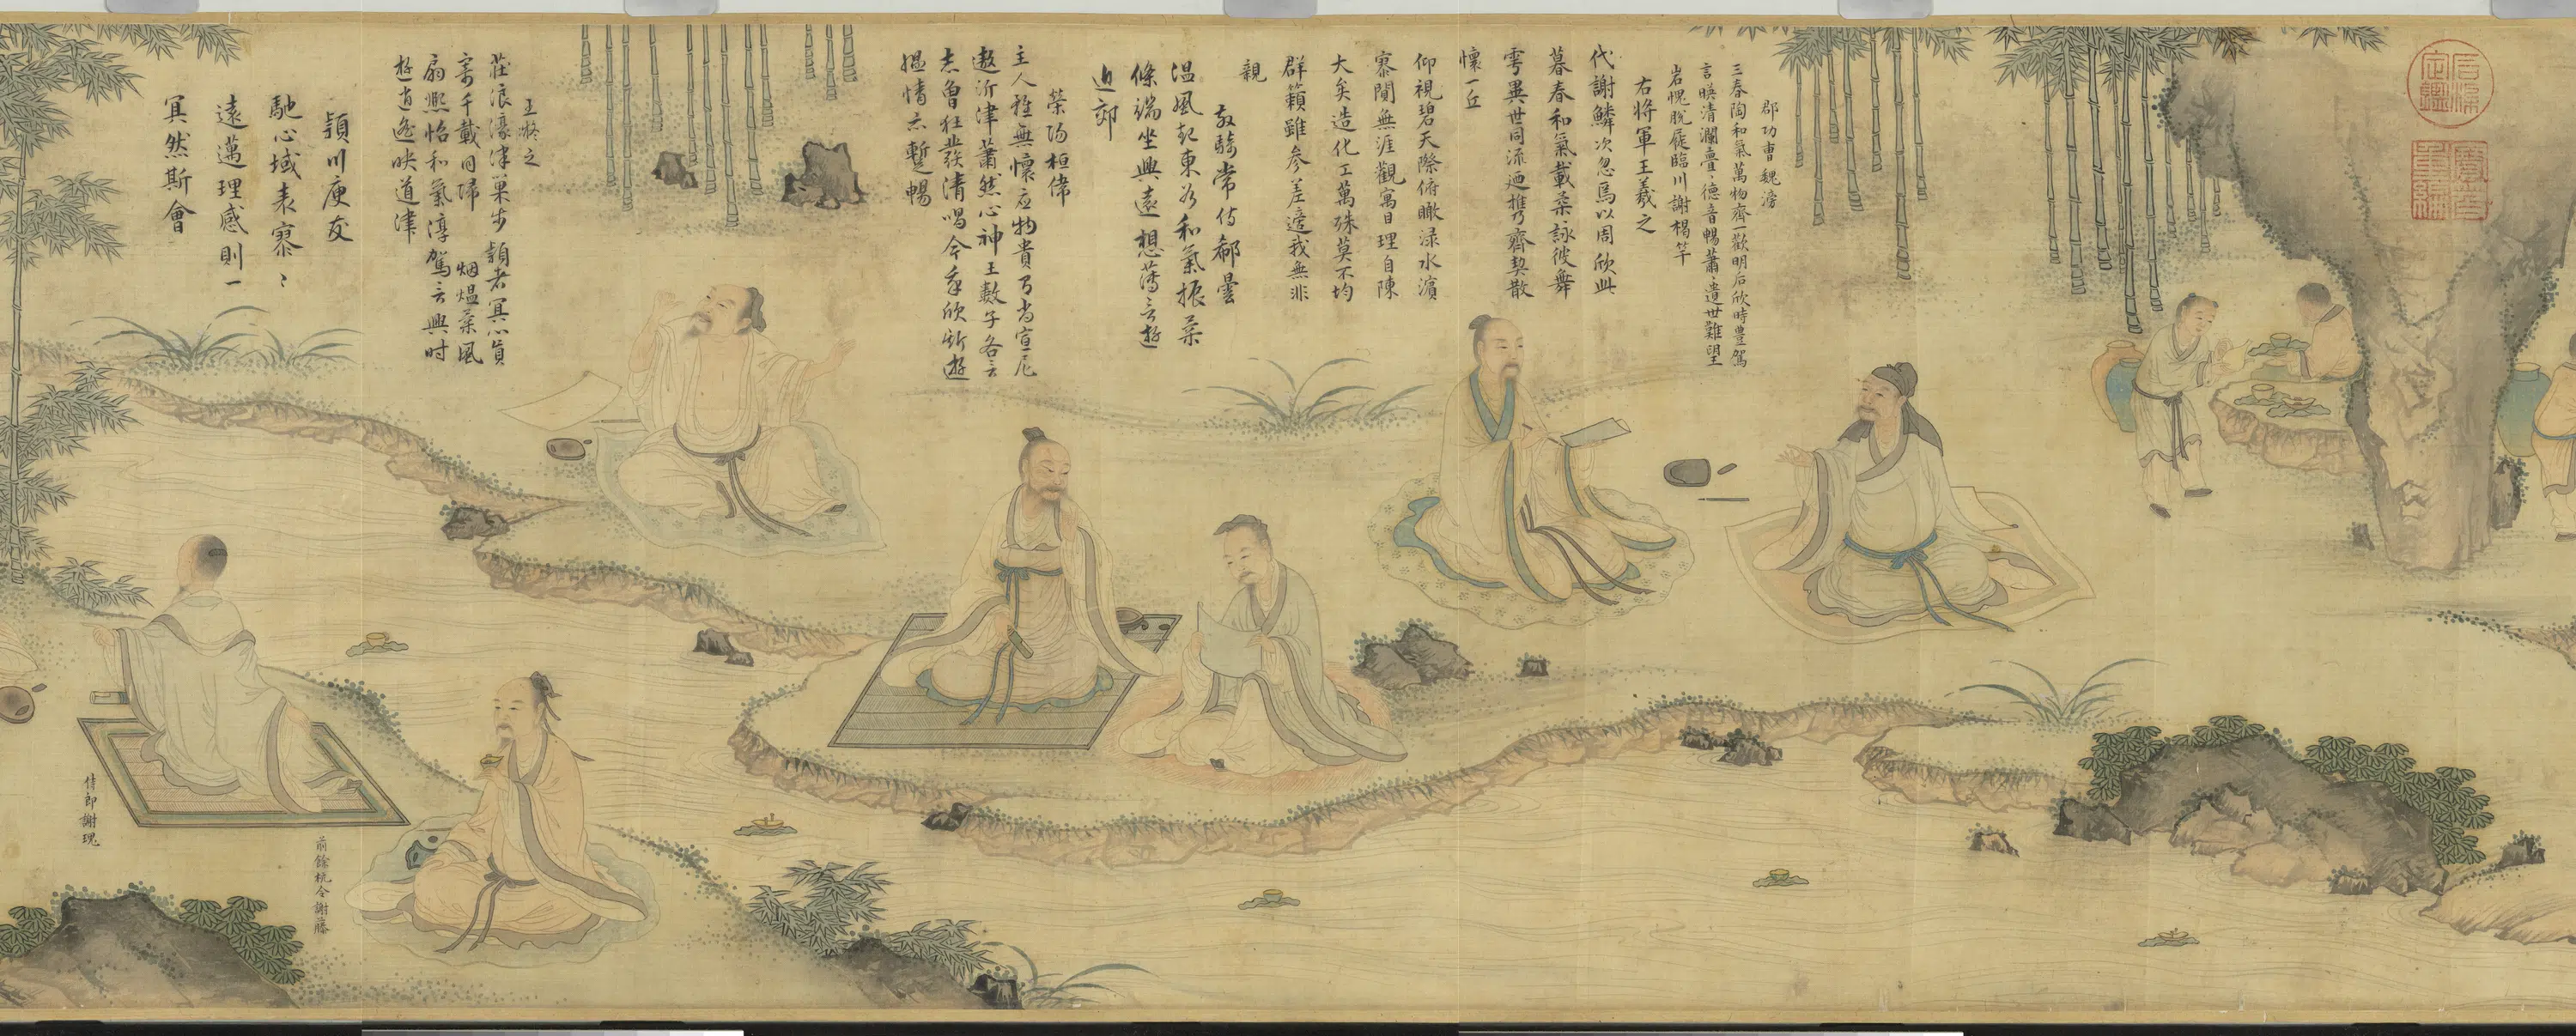 石渠定鑑
寶笈重編
郡功曹魏滂
三春陶和氣萬物齊一歡明后欣時豊駕
言暎清瀾亹亹德音暢蕭蕭遺世難望
岩愧脫屣臨川謝揭竿
右將軍王羲之
代謝鱗次忽焉以周欣此
暮春和氣載柔詠彼舞
雩異世同流迺攜齊契散
懷一丘
仰視碧天際俯瞰淥水濱
寥闃無涯觀寓目理自陳
大矣造化工萬殊莫不均
群籟雖參差適我無非
親
散騎常侍郗曇
温風起東谷和氣振柔
條端坐興遠想薄言遊
近郊
榮陽桓偉
主人雖無懷應物貴有尚宣尼
遨沂津蕭然心神王數子各言
志魯狂發清唱今我欣斯遊
愠情亦暫暢
王凝之
莊浪濠津巢步頴者冥心真
寄千載同歸 烟煴柔風
扇熙怡和氣淳駕言興时
遊逍遙映道津
頴川庾友
馳心域表寥〻
遠邁理感則一
冥然斯會
前餘杭令謝藤
侍郎謝瑰